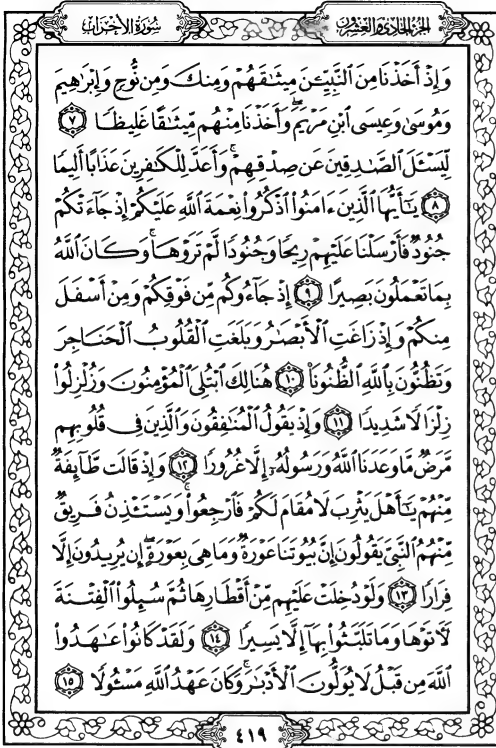 سُورَةُ الأَحْزَابِ
الجُزْءُ الحَادِي وَالعِشْرُونَ
وَإِذْ أَخَذْنَا مِنَ ٱلنَّبِيِّـۧنَ مِيثَٰقَهُمْ وَمِنكَ وَمِن نُّوحٍ وَإِبْرَٰهِيمَ
وَمُوسَىٰ وَعِيسَى ٱبْنِ مَرْيَمَ ۖ وَأَخَذْنَا مِنْهُم مِّيثَٰقًا غَلِيظًا ٧
لِّيَسْـَٔلَ ٱلصَّٰدِقِينَ عَن صِدْقِهِمْ ۚ وَأَعَدَّ لِلْكَٰفِرِينَ عَذَابًا أَلِيمًا
٨ يَٰٓأَيُّهَا ٱلَّذِينَ ءَامَنُوا۟ ٱذْكُرُوا۟ نِعْمَةَ ٱللَّهِ عَلَيْكُمْ إِذْ جَآءَتْكُمْ
جُنُودٌ فَأَرْسَلْنَا عَلَيْهِمْ رِيحًا وَجُنُودًا لَّمْ تَرَوْهَا ۚ وَكَانَ ٱللَّهُ
بِمَا تَعْمَلُونَ بَصِيرًا ٩ إِذْ جَآءُوكُم مِّن فَوْقِكُمْ وَمِنْ أَسْفَلَ
مِنكُمْ وَإِذْ زَاغَتِ ٱلْأَبْصَٰرُ وَبَلَغَتِ ٱلْقُلُوبُ ٱلْحَنَاجِرَ
وَتَظُنُّونَ بِٱللَّهِ ٱلظُّنُونَا۠ ١٠ هُنَالِكَ ٱبْتُلِىَ ٱلْمُؤْمِنُونَ وَزُلْزِلُوا۟
زِلْزَالًا شَدِيدًا ١١ وَإِذْ يَقُولُ ٱلْمُنَٰفِقُونَ وَٱلَّذِينَ فِى قُلُوبِهِم
مَّرَضٌ مَّا وَعَدَنَا ٱللَّهُ وَرَسُولُهُۥٓ إِلَّا غُرُورًا ١٢ وَإِذْ قَالَت طَّآئِفَةٌ
مِّنْهُمْ يَٰٓأَهْلَ يَثْرِبَ لَا مُقَامَ لَكُمْ فَٱرْجِعُوا۟ ۚ وَيَسْتَـْٔذِنُ فَرِيقٌ
مِّنْهُمُ ٱلنَّبِىَّ يَقُولُونَ إِنَّ بُيُوتَنَا عَوْرَةٌ وَمَا هِىَ بِعَوْرَةٍ ۖ إِن يُرِيدُونَ إِلَّا
فِرَارًا ١٣ وَلَوْ دُخِلَتْ عَلَيْهِم مِّنْ أَقْطَارِهَا ثُمَّ سُئِلُوا۟ ٱلْفِتْنَةَ
لَءَاتَوْهَا وَمَا تَلَبَّثُوا۟ بِهَآ إِلَّا يَسِيرًا ١٤ وَلَقَدْ كَانُوا۟ عَٰهَدُوا۟
ٱللَّهَ مِن قَبْلُ لَا يُوَلُّونَ ٱلْأَدْبَٰرَ ۚ وَكَانَ عَهْدُ ٱللَّهِ مَسْـُٔولًا ١٥
٤١٩